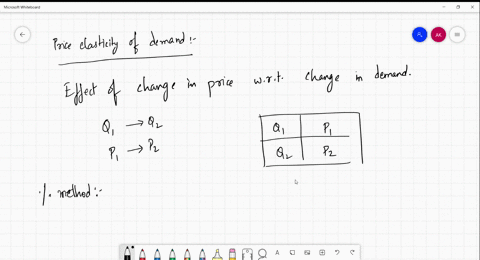 Microsoft Whiteboard
AK
Price elasticity of demand :-
Effect of change in price w.r.t. change in demand.
Q1 → Q2
P1 → P2
Q1 P1
Q2 P2
% method :-